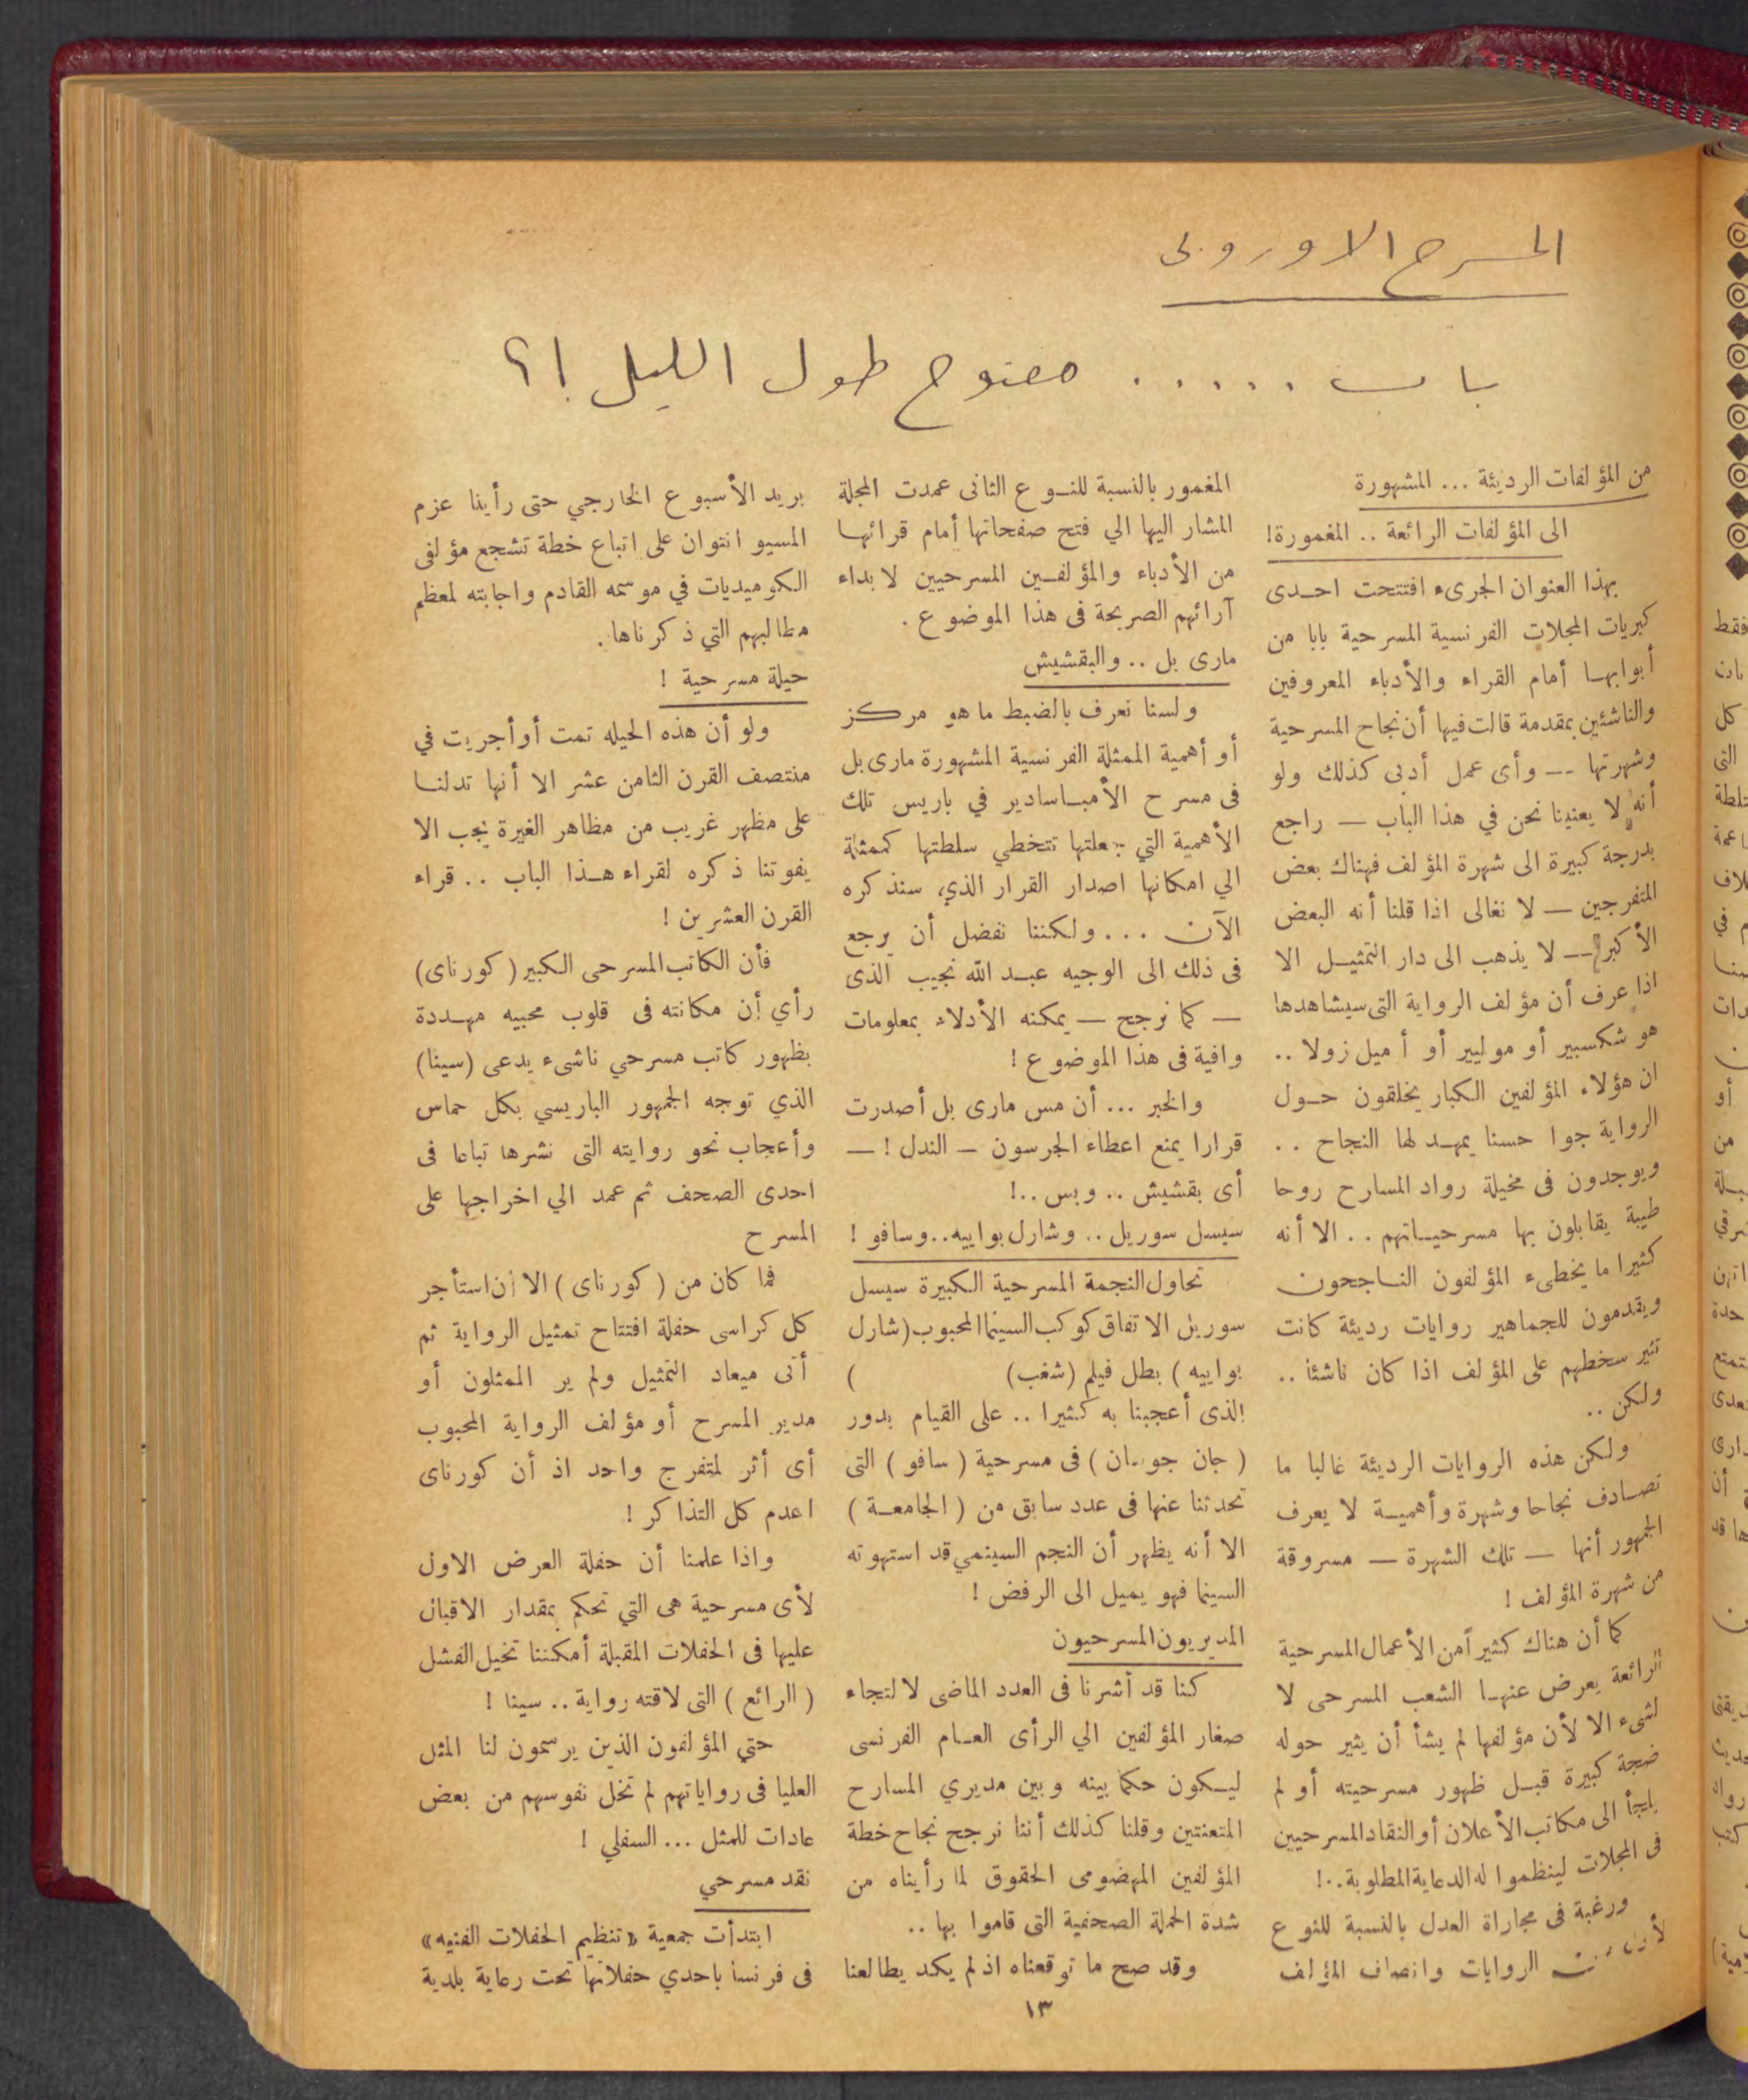 المسرح الاوروبى
باب ..... مفتوح طول الليل !؟
من المؤلفات الرديئة ... المشهورة
الى المؤلفات الرائعة .. المغمورة!
بهذا العنوان الجرىء افتتحت احدى
كبريات المجلات الفرنسية المسرحية بابا من
أبوابها أمام القراء والأدباء المعروفين
والناشئين بمقدمة قالت فيها أن نجاح المسرحية
وشهرتها -- وأى عمل أدبى كذلك ولو
أنه لا يعنينا نحن في هذا الباب — راجع
بدرجة كبيرة الى شهرة المؤلف فهناك بعض
المتفرجين — لا نغالى اذا قلنا أنه البعض
الأكبر -- لا يذهب الى دار التمثيل الا
اذا عرف أن مؤلف الرواية التى سيشاهدها
هو شكسبير أو موليير أو أميل زولا ..
ان هؤلاء المؤلفين الكبار يخلقون حول
الرواية جوا حسنا يمهد لها النجاح ..
ويوجدون فى مخيلة رواد المسارح روحا
طيبة يقابلون بها مسرحياتهم .. الا أنه
كثيرا ما يخطىء المؤلفون الناجحون
ويقدمون للجماهير روايات رديئة كانت
تثير سخطهم على المؤلف اذا كان ناشئا ..
ولكن ..
ولكن هذه الروايات الرديئة غالبا ما
تصادف نجاحا وشهرة وأهمية لا يعرف
الجمهور أنها — تلك الشهرة — مسروقة
من شهرة المؤلف !
كما أن هناك كثيرآ من الأعمال المسرحية
الرائعة يعرض عنها الشعب المسرحى لا
لشىء الا لأن مؤلفها لم يشأ أن يثير حوله
ضجة كبيرة قبل ظهور مسرحيته أو لم
يلجأ الى مكاتب الأعلان أو النقاد المسرحيين
فى المجلات لينظموا له الدعاية المطلوبة..!
ورغبة فى مجاراة العدل بالنسبة للنوع
الروايات وانصاف المؤلف
المغمور بالنسبة للنوع الثانى عمدت المجلة
المشار اليها الي فتح صفحاتها أمام قرائها
من الأدباء والمؤلفين المسرحيين لابداء
آرائهم الصريحة فى هذا الموضوع .
مارى بل .. والبقشيش
ولسنا نعرف بالضبط ما هو مركز
أو أهمية الممثلة الفرنسية المشهورة مارى بل
فى مسرح الأمباسادير في باريس تلك
الأهمية التي جعلتها تتخطي سلطتها كممثلة
الي امكانها اصدار القرار الذي سنذكره
الآن ... ولكننا نفضل أن يرجع
فى ذلك الى الوجيه عبد الله نجيب الذى
— كما نرجح — يمكنه الأدلاء بمعلومات
وافية فى هذا الموضوع !
والخبر ... أن مس مارى بل أصدرت
قرارا يمنع اعطاء الجرسون — الندل ! —
أى بقشيش .. وبس ..!
سيسل سوريل .. وشارل بواييه..وسافو !
تحاول النجمة المسرحية الكبيرة سيسل
سوريل الاتفاق كوكب السينما المحبوب (شارل
بواييه ) بطل فيلم (شغب) )
الذى أعجبنا به كثيرا .. على القيام بدور
( جان جوسان ) فى مسرحية ( سافو ) التى
تحدثنا عنها فى عدد سابق من ( الجامعة )
الا أنه يظهر أن النجم السينمي قد استهوته
السينما فهو يميل الى الرفض !
المديريون المسرحيون
كنا قد أشرنا فى العدد الماضى لالتجاء
صغار المؤلفين الي الرأى العام الفرنسى
ليكون حكما بينه وبين مديري المسارح
المتعنتين وقلنا كذلك أننا نرجح نجاح خطة
المؤلفين المهضومى الحقوق لما رأيناه من
شدة الحملة الصحفية التى قاموا بها ..
وقد صح ما توقعناه اذ لم يكد يطالعنا
بريد الأسبوع الخارجي حتى رأينا عزم
المسيو انتوان على اتباع خطة تشجع مؤلفى
الكوميديات في موسمه القادم واجابته لمعظم
مطالبهم التي ذكرناها .
حيلة مسرحية !
ولو أن هذه الحيله تمت أو أجريت في
منتصف القرن الثامن عشر الا أنها تدلنا
على مظهر غريب من مظاهر الغيرة يجب الا
يفوتنا ذكره لقراء هذا الباب .. قراء
القرن العشرين !
فأن الكاتب المسرحى الكبير ( كورناى )
رأي أن مكانته فى قلوب محبيه مهددة
بظهور كاتب مسرحي ناشىء يدعى (سينا)
الذي توجه الجمهور الباريسي بكل حماس
وأعجاب نحو روايته التى نشرها تباعا فى
احدى الصحف ثم عمد الي اخراجها على
المسرح
فما كان من ( كورناى ) الا أن استأجر
كل كراسى حفلة افتتاح تمثيل الرواية ثم
أتى ميعاد التمثيل ولم ير الممثلون أو
مدير المسرح أو مؤلف الرواية المحبوب
أى أثر لمتفرج واحد اذ أن كورناى
اعدم كل التذاكر !
واذا علمنا أن حفلة العرض الاول
لأى مسرحية هى التي تحكم بمقدار الاقبال
عليها فى الحفلات المقبلة أمكننا تخيل الفشل
( الرائع ) التى لاقته رواية .. سينا !
حتي المؤلفون الذين يرسمون لنا المثل
العليا فى رواياتهم لم تخل نفوسهم من بعض
عادات للمثل ... السفلي !
نقد مسرحي
ابتدأت جمعية «تنظيم الحفلات الفنيه»
فى فرنسا باحدي حفلاتها تحت رعاية بلدية
١٣